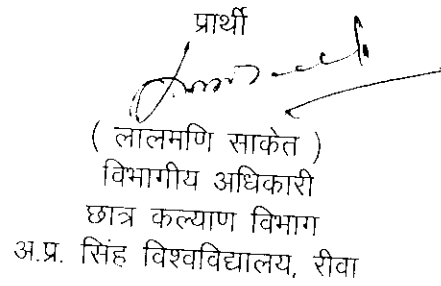 प्रार्थी
( लालमणि साकेत )
विभागीय अधिकारी
छात्र कल्याण विभाग
अ.प्र. सिंह विश्वविद्यालय, रीवा